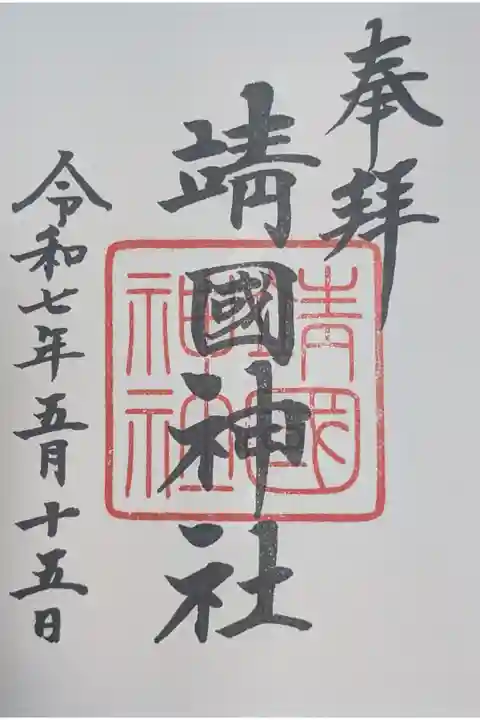 奉拜
靖國神社
靖國
神社
令和七年五月十五日